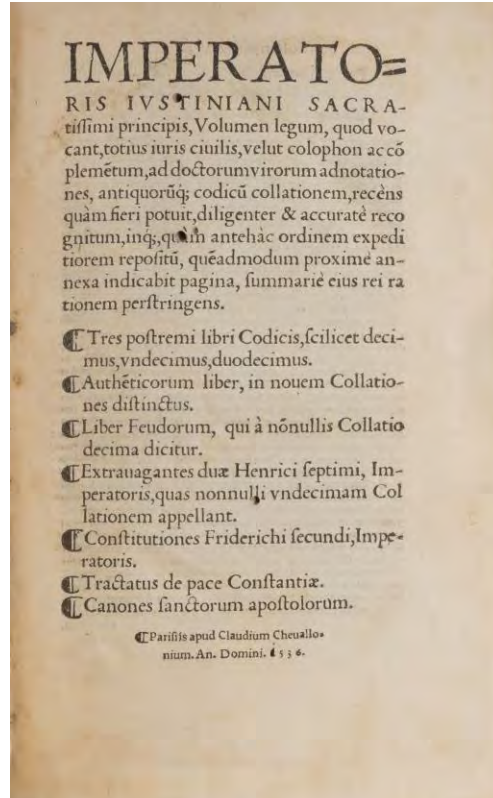 IMPERATO=
RIS IVSTINIANI SACRA-
tiſſimi principis, Volumen legum, quod vo-
cant,totius iuris ciuilis,velut colophon ac cõ
plemẽtum,ad doctorum virorum adnotatio-
nes, antiquorũq; codicũ collationem,recèns
quàm fieri potuit,diligenter & accuratè reco
gnitum,inq;,quàm antehàc ordinem expedi
tiorem repoſitũ, quẽadmodum proximè an-
nexa indicabit pagina, ſummariè eius rei ra
tionem perſtringens.
¶Tres poſtremi libri Codicis,ſcilicet deci-
mus,vndecimus,duodecimus.
¶Authẽticorum liber, in nouem Collatio-
nes diſtinctus.
¶Liber Feudorum, qui à nõnullis Collatio
decima dicitur.
¶Extrauagantes duæ Henrici ſeptimi, Im-
peratoris,quas nonnulli vndecimam Col
lationem appellant.
¶Conſtitutiones Friderichi ſecundi,Impe-
ratoris.
¶Tractatus de pace Conſtantiæ.
¶Canones ſanctorum apoſtolorum.
¶Pariſiis apud Claudium Cheuallo-
nium. An. Domini. 1536.